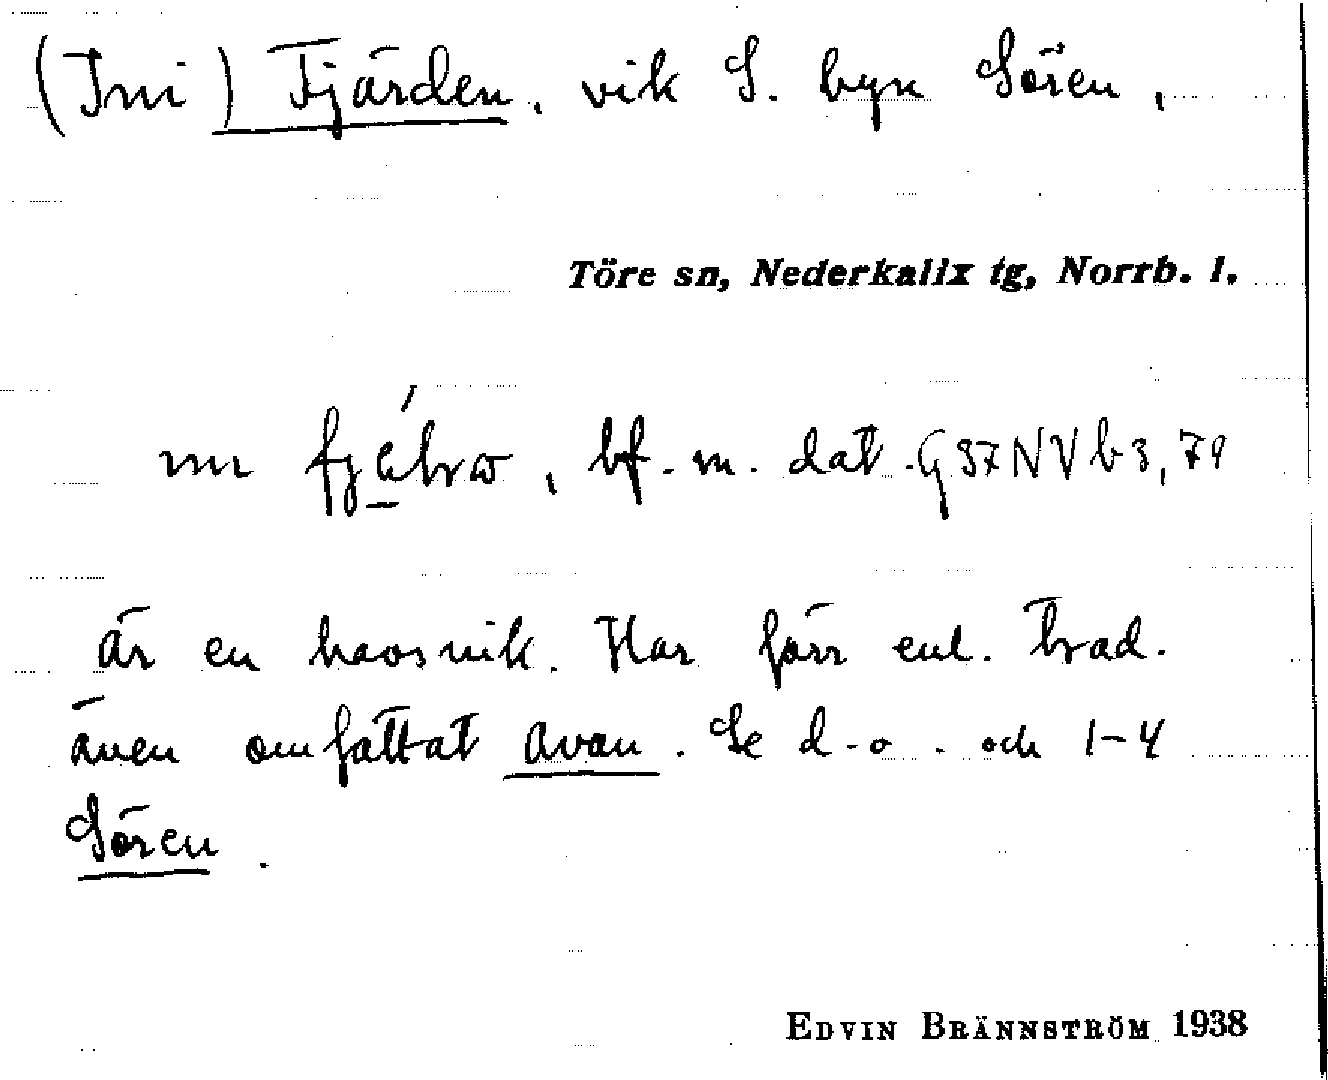 (Ini) Fjärden, vik S. byn Sören,
Töre sn, Nederkalix tg, Norrb. l.
bf. m. dat. G37NVb3,79
är en havsvik. Har förr enl. trad.
även omfattat Avan. Se d-o. och 1-4
Sören.
EDVIN BRÄNNSTRÖM 1938